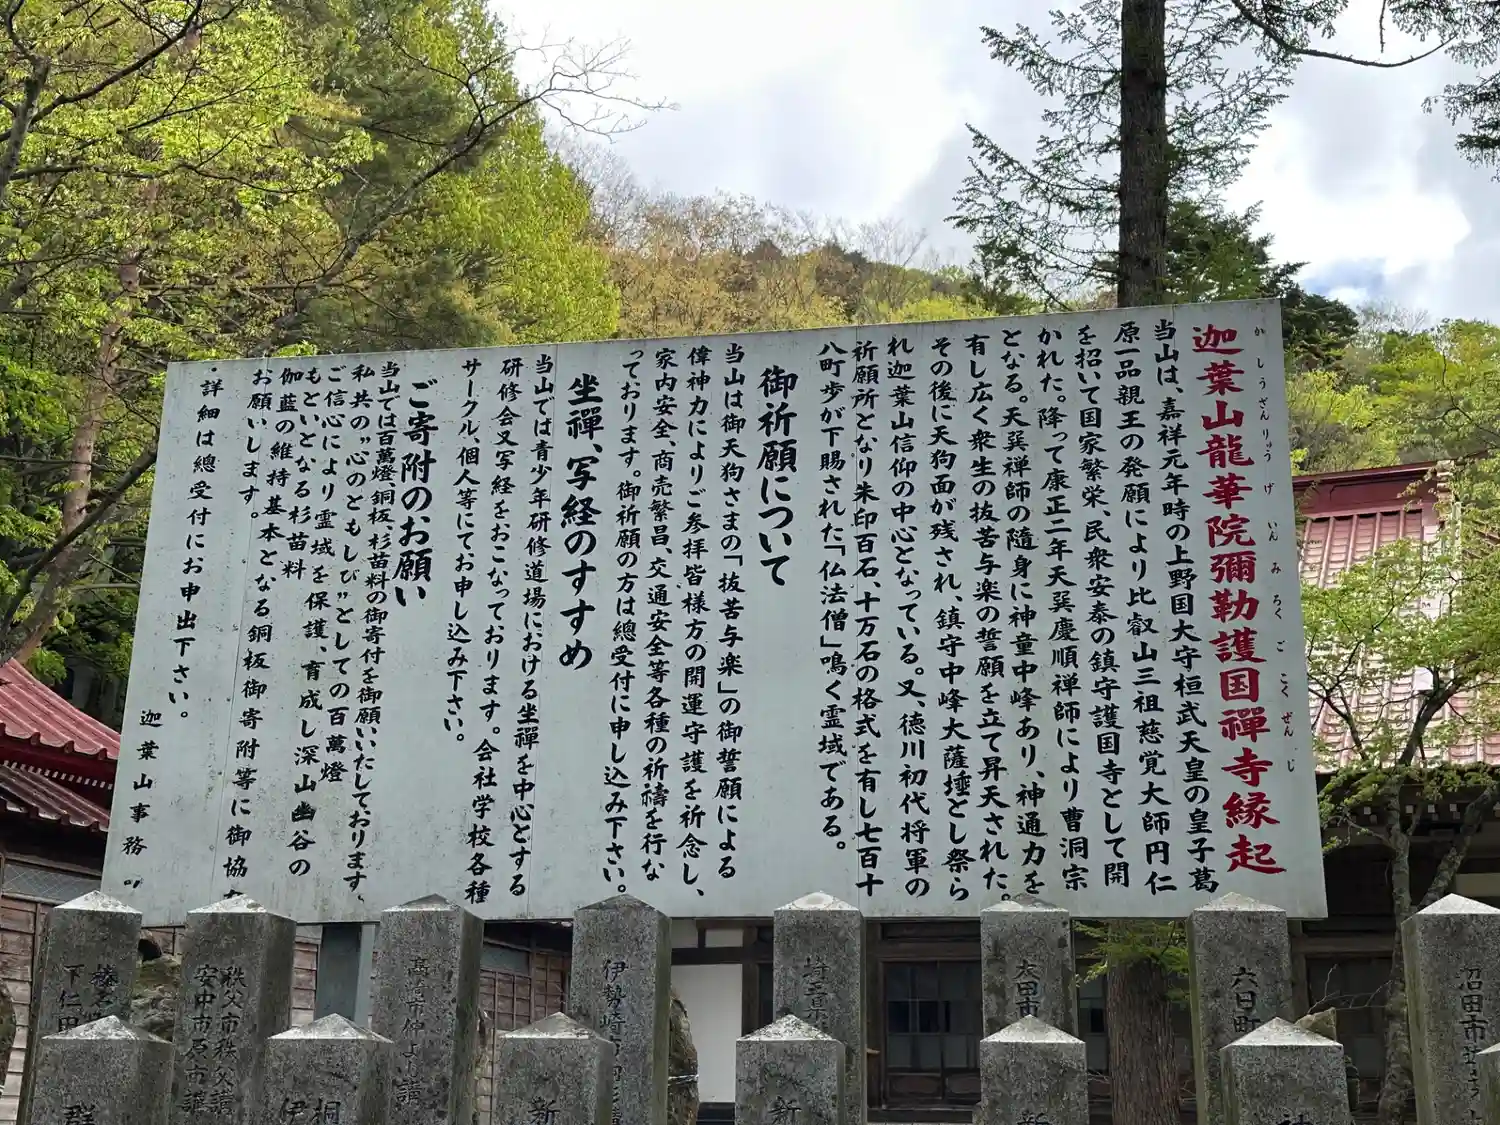 迦葉山龍華院彌勒護国禪寺縁起
かしうざんりゅうげいんみろくごこくぜんじ
当山は、嘉祥元年時の上野国大守桓武天皇の皇子葛
原一品親王の発願により比叡山三祖慈覚大師円仁
を招いて国家繁栄、民衆安泰の鎮守護国寺として開
かれた。降って康正二年天巽慶順禅師により曹洞宗
となる。天巽禅師の隨身に神童中峰あり、神通力を
有し広く衆生の抜苦与楽の誓願を立て昇天された。
その後に天狗面が残され、鎮守中峰大薩埵とし祭ら
れ迦葉山信仰の中心となっている。又、徳川初代将軍の
祈願所となり朱印百石、十万石の格式を有し七百十
八町歩が下賜された「仏法僧」鳴く霊域である。
御祈願について
当山は御天狗さまの「抜苦与楽」の御誓願による
偉神力によりご参拝皆様方の開運守護を祈念し、
家内安全、商売繁昌、交通安全等各種の祈禱を行な
っております。御祈願の方は總受付に申し込み下さい。
坐禪、写経のすすめ
当山では青少年研修道場における坐禪を中心とする
研修会又写経をおこなっております。会社学校各種
サークル、個人等にてお申し込み下さい。
ご寄附のお願い
当山では百萬燈銅板、杉苗料の御寄付を御願いいたしております、
私共の"心のともしび"としての百萬燈
ご信心により霊域を保護、育成し深山幽谷の
もといとなる杉苗料
伽藍の維持基本となる銅板御寄附等に御協
お願いします。
・詳細は總受付にお申出下さい。
迦葉山事務
下仁田
安中市原市講
秩父市秩父講
高崎市仲よし講
伊勢崎市
埼玉県
太田市
六日町
沼田市
群
伊
桐
新
新
新